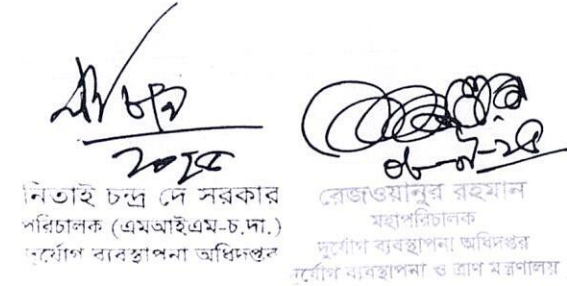 নিতাই চন্দ্র দে সরকার
পরিচালক (এমআইএম-চ.দা.)
দুর্যোগ ব্যবস্থাপনা অধিদপ্তর
রেজওয়ানুর রহমান
মহাপরিচালক
দুর্যোগ ব্যবস্থাপনা অধিদপ্তর
দুর্যোগ ব্যবস্থাপনা ও ত্রাণ মন্ত্রণালয়